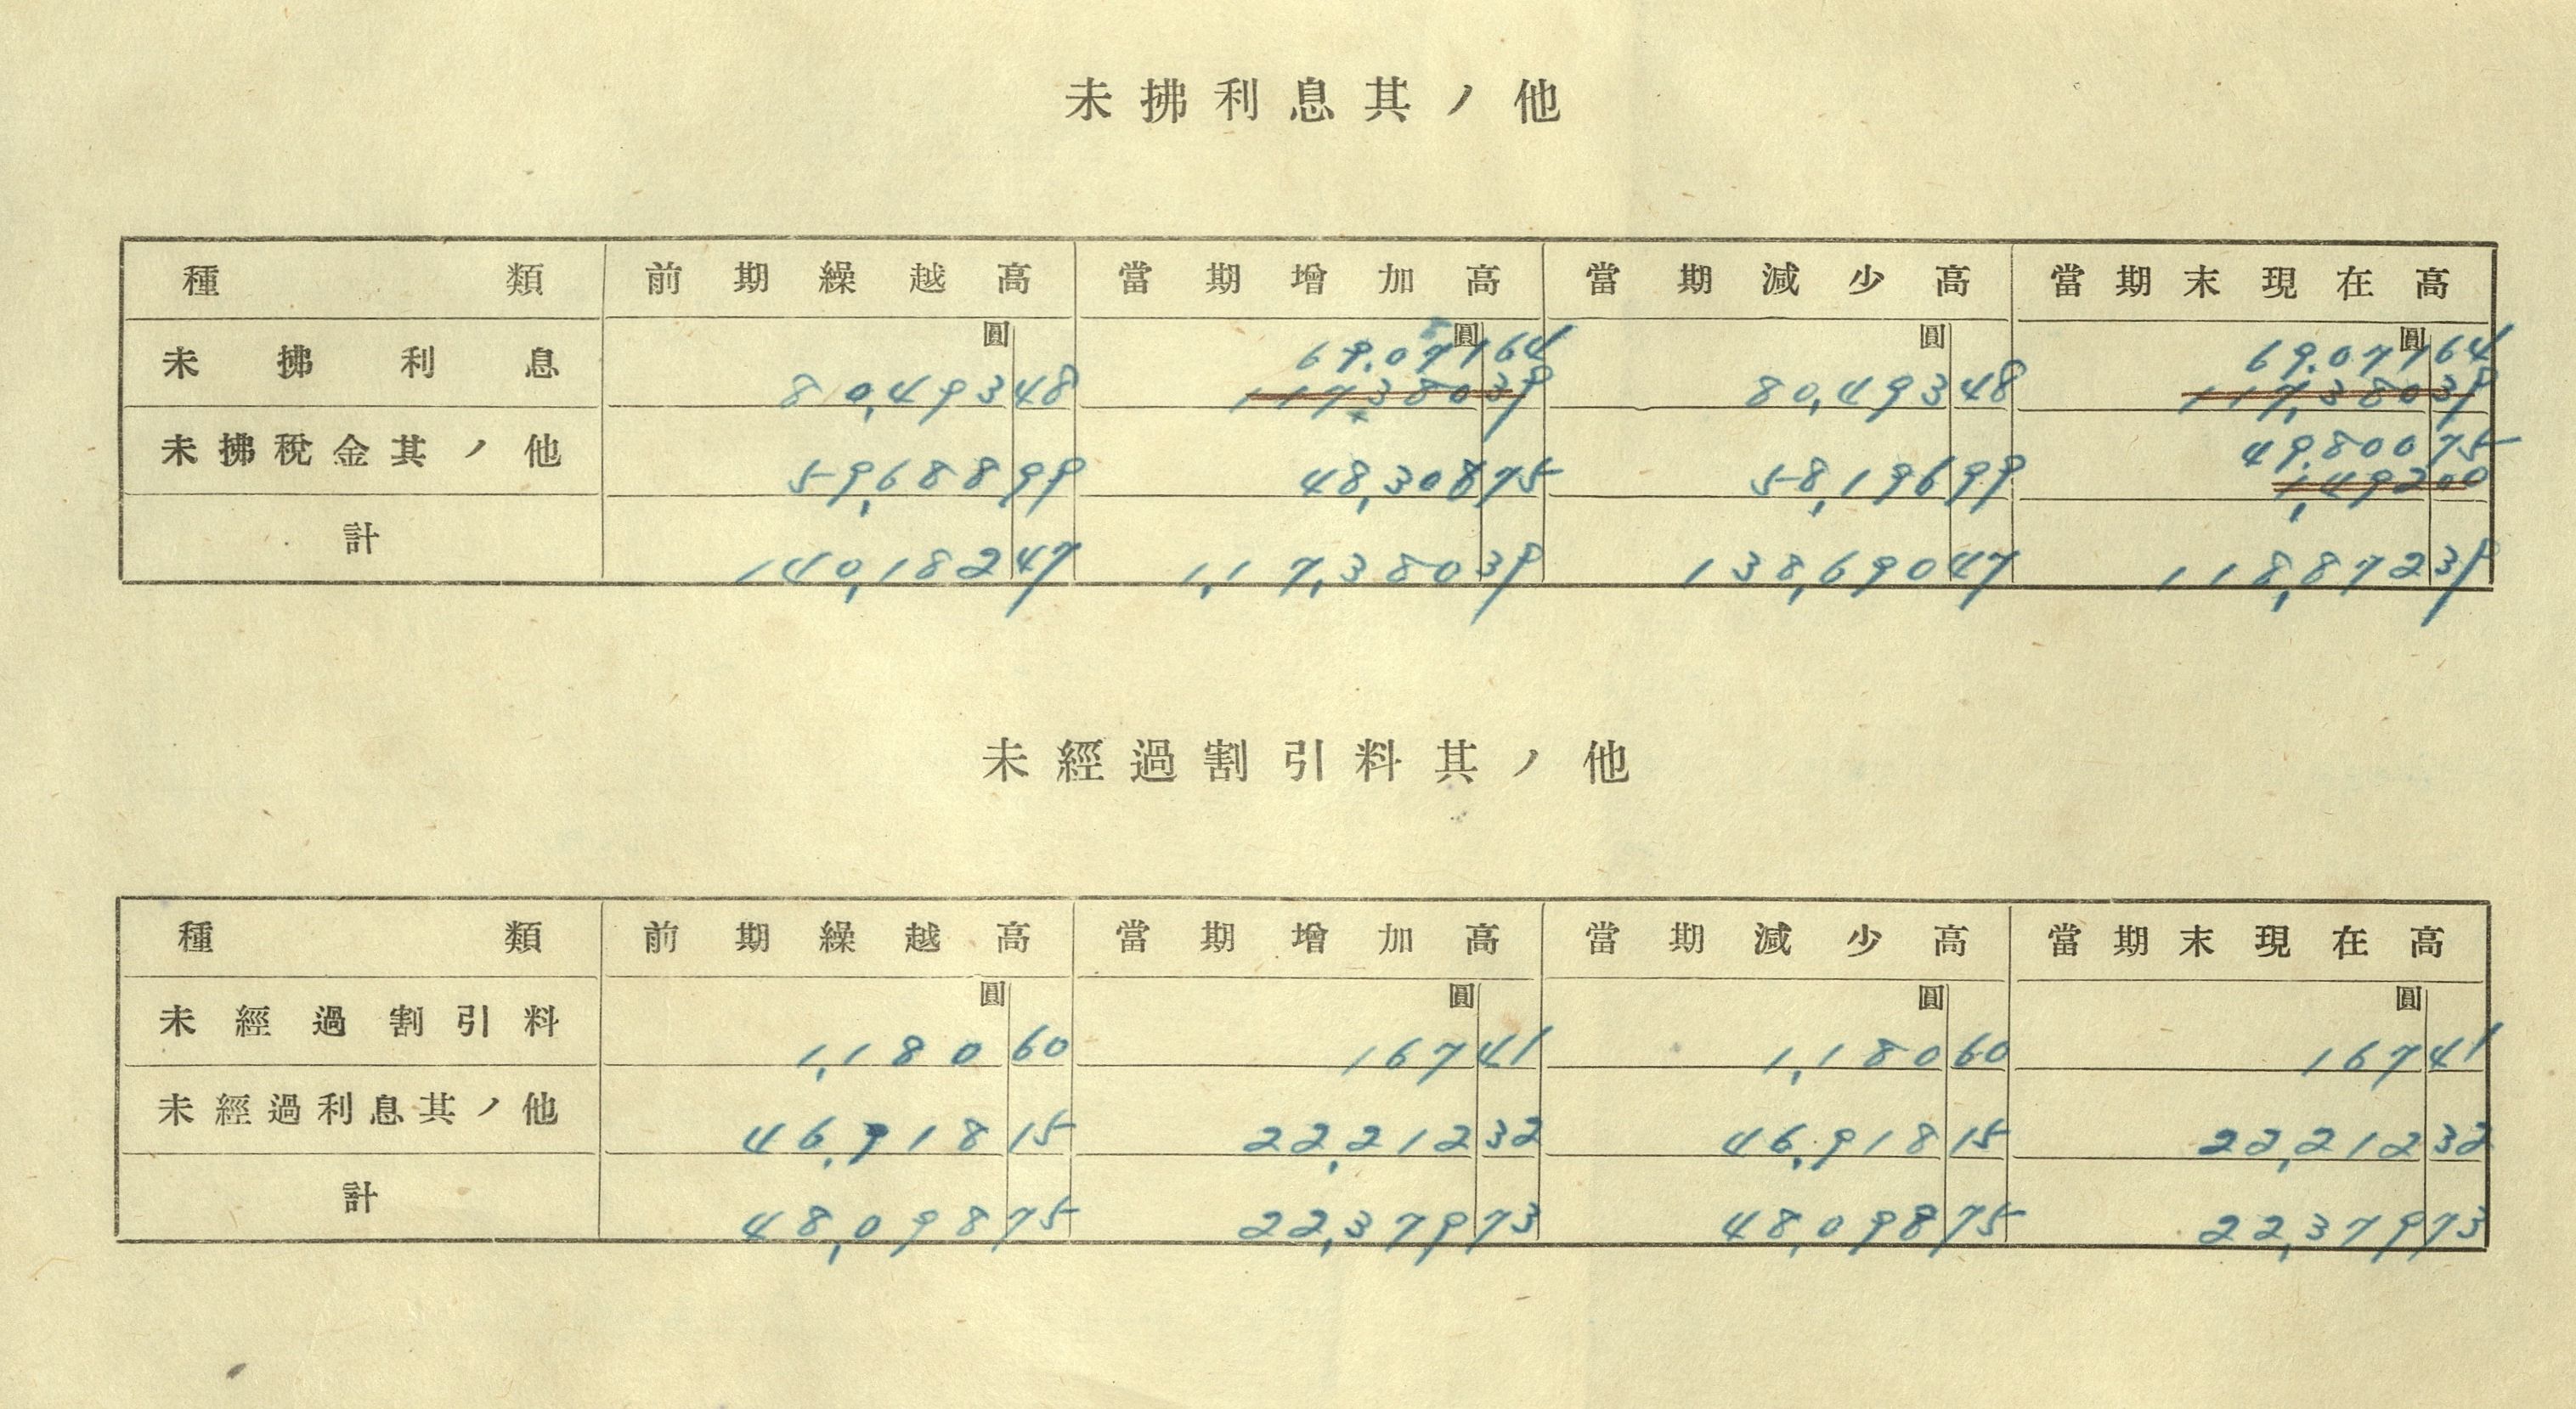 未拂利息其ノ他
種類 前期繰越高 當期增加高 當期減少高 當期末現在高
圓 圓 圓 圓
69,071 64 69,071 64
未拂利息 80,493 48 117,380 39 80,493 48 117,380 39
49,800 75
未拂稅金其ノ他 59,688 99 48,308 75 58,196 99 1,492 00
計 140,182 47 117,380 39 138,690 47 118,872 39
未經過割引料其ノ他
種類 前期繰越高 當期增加高 當期減少高 當期末現在高
圓 圓 圓 圓
未經過割引料 1,180 60 167 41 1,180 60 167 41
未經過利息其ノ他 46,918 15 22,212 32 46,918 15 22,212 32
計 48,098 75 22,379 73 48,098 75 22,379 73